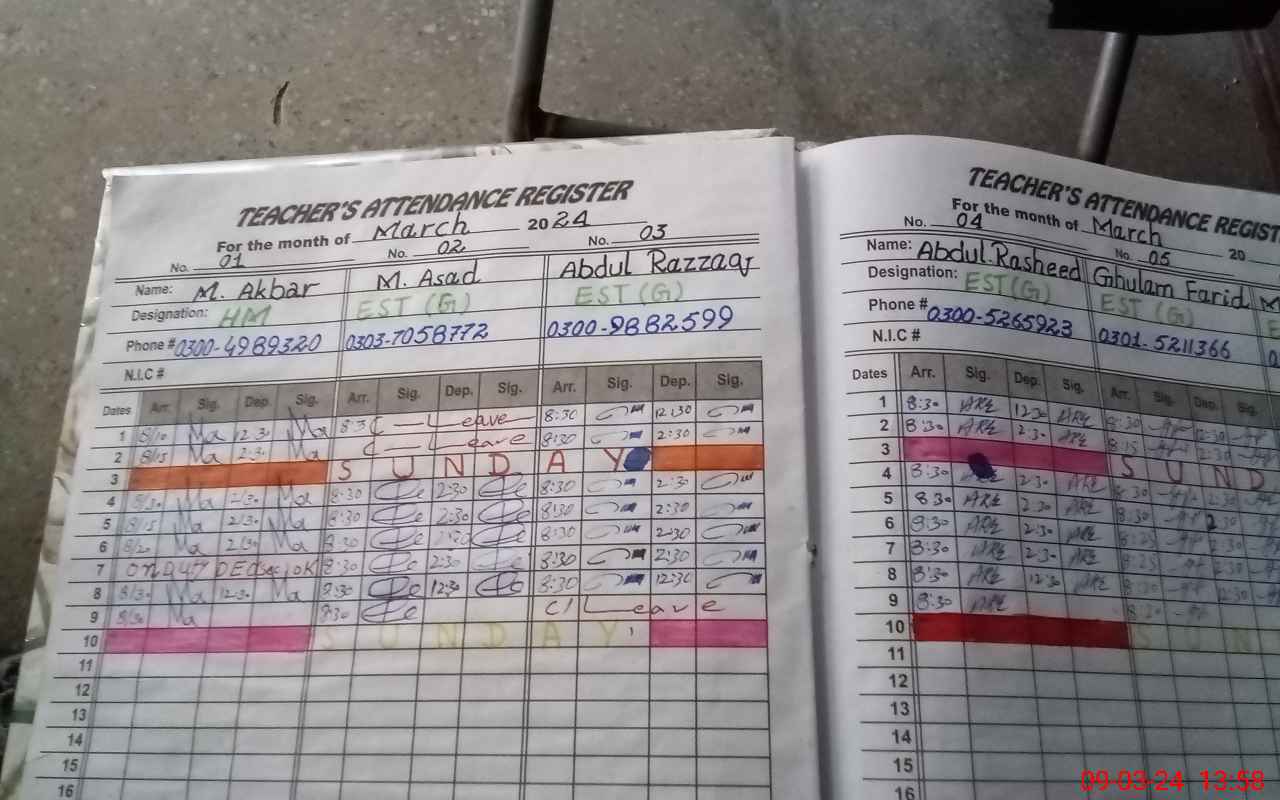 TEACHER'S ATTENDANCE REGISTER
For the month of March 2024
No. 01 No. 02 No. 03
Name: M. Akbar M. Asad Abdul Razzaq
Designation: HM EST (G) EST (G)
Phone # 0300-4989320 0303-7058772 0300-9882599
N.I.C #
Dates Arr. Sig. Dep. Sig. Arr. Sig. Dep. Sig. Arr. Sig. Dep. Sig.
1 8/10 Ma 12.30 Ma 8:3 C-Leave 8:30 12:30
2 8/15 Ma 2.30 Ma C-Leave 8:30 2:30
3 SUNDAY
4 8/30 Ma 2/30 Ma 8:30 2:30 8:30 2:30
5 8/15 Ma 2/30 Ma 8:30 2:30 8:30 2:30
6 8/20 Ma 2/30 Ma 8:30 2:30 8:30 2:30
7 ON DUTY 8:30 2:30 8:30 2:30
8 8/30 Ma 12.30 Ma 8:30 12:30 8:30 12:30
9 8/30 Ma 8:30 C/Leave
10 SUNDAY
11
12
13
14
15
16
TEACHER'S ATTENDANCE REGIST
For the month of March 20
No. 04 No. 05
Name: Abdul Rasheed Ghulam Farid M
Designation: EST(G) EST (G) E
Phone # 0300-5265923 0301-5211366
N.I.C #
Dates Arr. Sig. Dep. Sig. Arr. Sig. Dep. Sig.
1 8:30 12:30 8:30 12:30
2 8:30 2:30 8:15 2:30
3 SUND
4 8:30 2:30 8:30 2:30
5 8:30 2:30 8:30 2:30
6 8:30 2:30 8:25 2:30
7 8:30 2:30 8:25 2:30
8 8:30 12:30 8:30 12:30
9 8:30 8:20
10 SUN
11
12
13
14
15
16
09-03-24 13:58